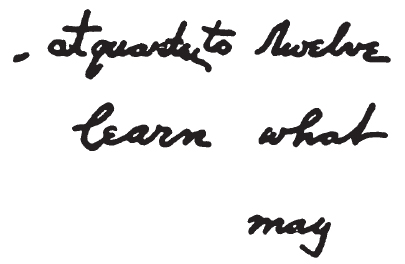 . at quarter to twelve
learn what
may